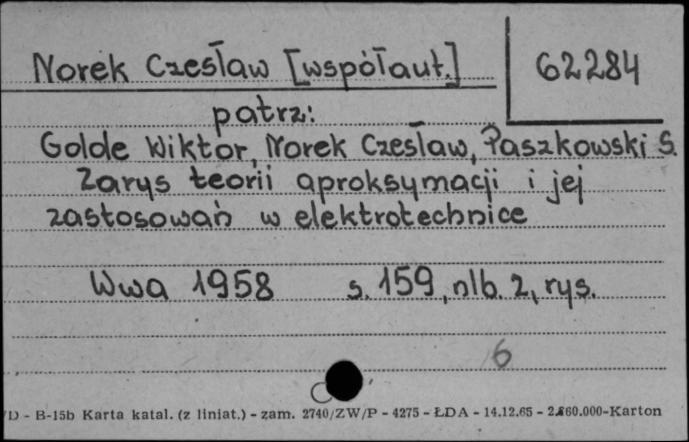 Norek Czesław [współaut.]
62284
patrz:
Golde Wiktor, Norek Czesław, Paszkowski S.
Zarys teorii aproksymacji i jej
zastosowań w elektrotechnice
Wwa 1958 s. 159, nlb. 2, rys.
6
D - B-15b Karta katal. (z liniat.) - zam. 2740/ZW/P - 4275 - ŁDA - 14.12.65 - 2.860.000-Karton